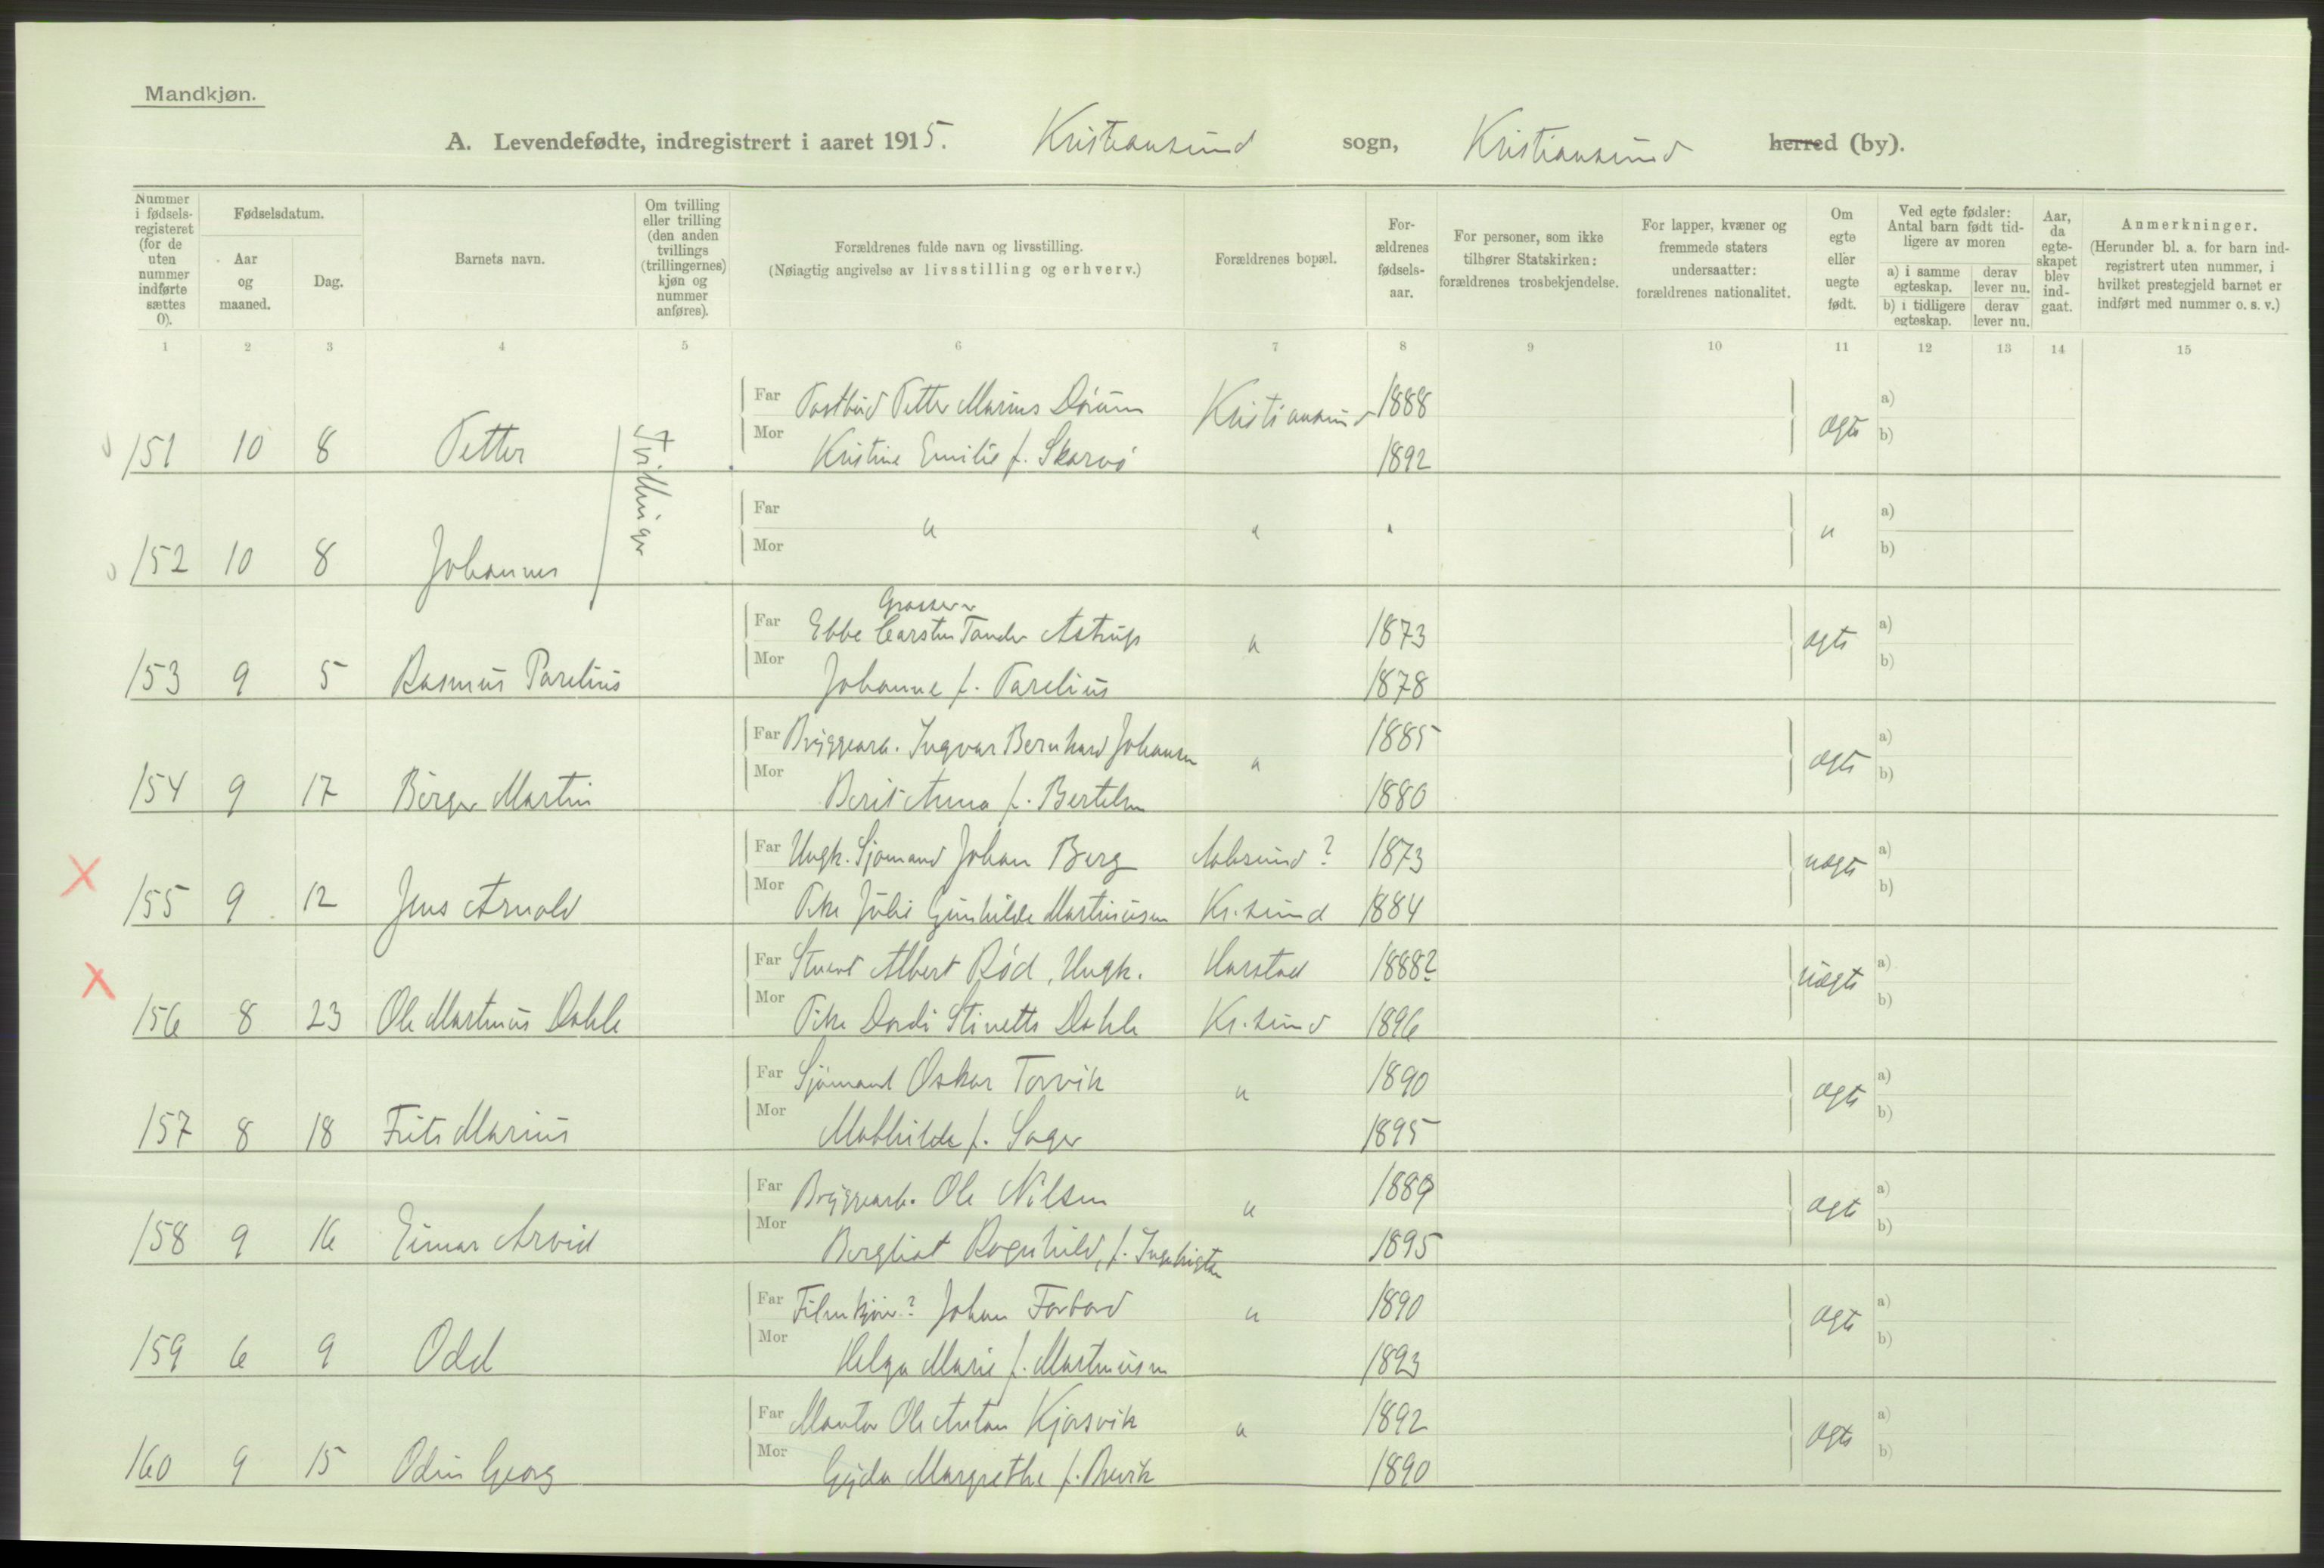 Mandkjøn.
A. Levendefødte, indregistrert i aaret 1915. Kristiansund sogn, Kristiansund herred (by).
Nummer i fødselsregisteret (for de uten nummer indførte sættes 0).
Fødselsdatum.
Aar og maaned.
Dag.
Barnets navn.
Om tvilling eller trilling (den anden tvillings (trillingernes) kjøn og nummer anføres).
Forældrenes fulde navn og livsstilling.
(Nøiagtig angivelse av livsstilling og erhverv.)
Forældrenes bopæl.
Forældrenes fødselsaar.
For personer, som ikke tilhører Statskirken: forældrenes trosbekjendelse.
For lapper, kvæner og fremmede staters undersaatter: forældrenes nationalitet.
Om egte eller uegte født.
Ved egte fødsler: Antal barn født tidligere av moren
a) i samme egteskap.
derav lever nu.
b) i tidligere egteskap.
derav lever nu.
Aar, da egteskapet blev indgaat.
Anmerkninger.
(Herunder bl. a. for barn indregistrert uten nummer, i hvilket prestegjeld barnet er indført med nummer o. s. v.)
1 2 3 4 5 6 7 8 9 10 11 12 13 14 15
Far Postbud Petter Marius Dørum Kristiansund 1888 a)
151 10 8 Petter Tvillinger Mor Kristine Emilie f. Skarvø 1892 ægte b)
Far " " " " a)
152 10 8 Johannes Mor b)
Grosserer
Far Ebbe Carsten Tønder Astrup " 1873 ægte a)
153 9 5 Rasmus Parelius Mor Johanne f. Parelius 1878 b)
Far Bryggearb. Ingvar Bernhard Johansen " 1885 ægte a)
154 9 17 Birger Martin Mor Berit Anna f. Bertelsen 1880 b)
Far Ungk. Sjømand Johan Berg Aalesund? 1873 uægte a)
155 9 12 Jens Arnold Mor Pike Julie Gunhilde Martinusen Kr.sund 1884 b)
Far Stuert Albert Rød, Ungk. Harstad 1888? uægte a)
156 8 23 Ole Martinus Dahle Mor Pike Dordi Stinette Dahle Kr.sund 1896 b)
Far Sjømand Oskar Torvik " 1890 ægte a)
157 8 18 Frits Marius Mor Mathilde f. Sager 1895 b)
Far Bryggearb. Ole Nilsen " 1889 ægte a)
158 9 16 Einar Arvid Mor Bergliot Ragnhild, f. Ingebrigtsen 1895 b)
Far Johan Forbord " 1890 ægte a)
159 6 9 Odd Mor Helga Marie f. Martinusen 1893 b)
Far Montør Ole Anton Kjørsvik " 1892 ægte a)
160 9 15 Odin Georg Mor Gyda Margrethe f. Brevik 1890 b)